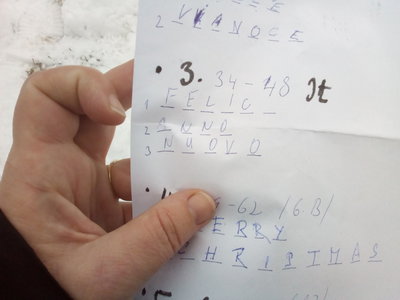 2 VIANOCE
3. 34-48 It
1 FELIC_
2 ANNO
3 NUOVO
-62 /6B/
ERRY
HRISTMAS